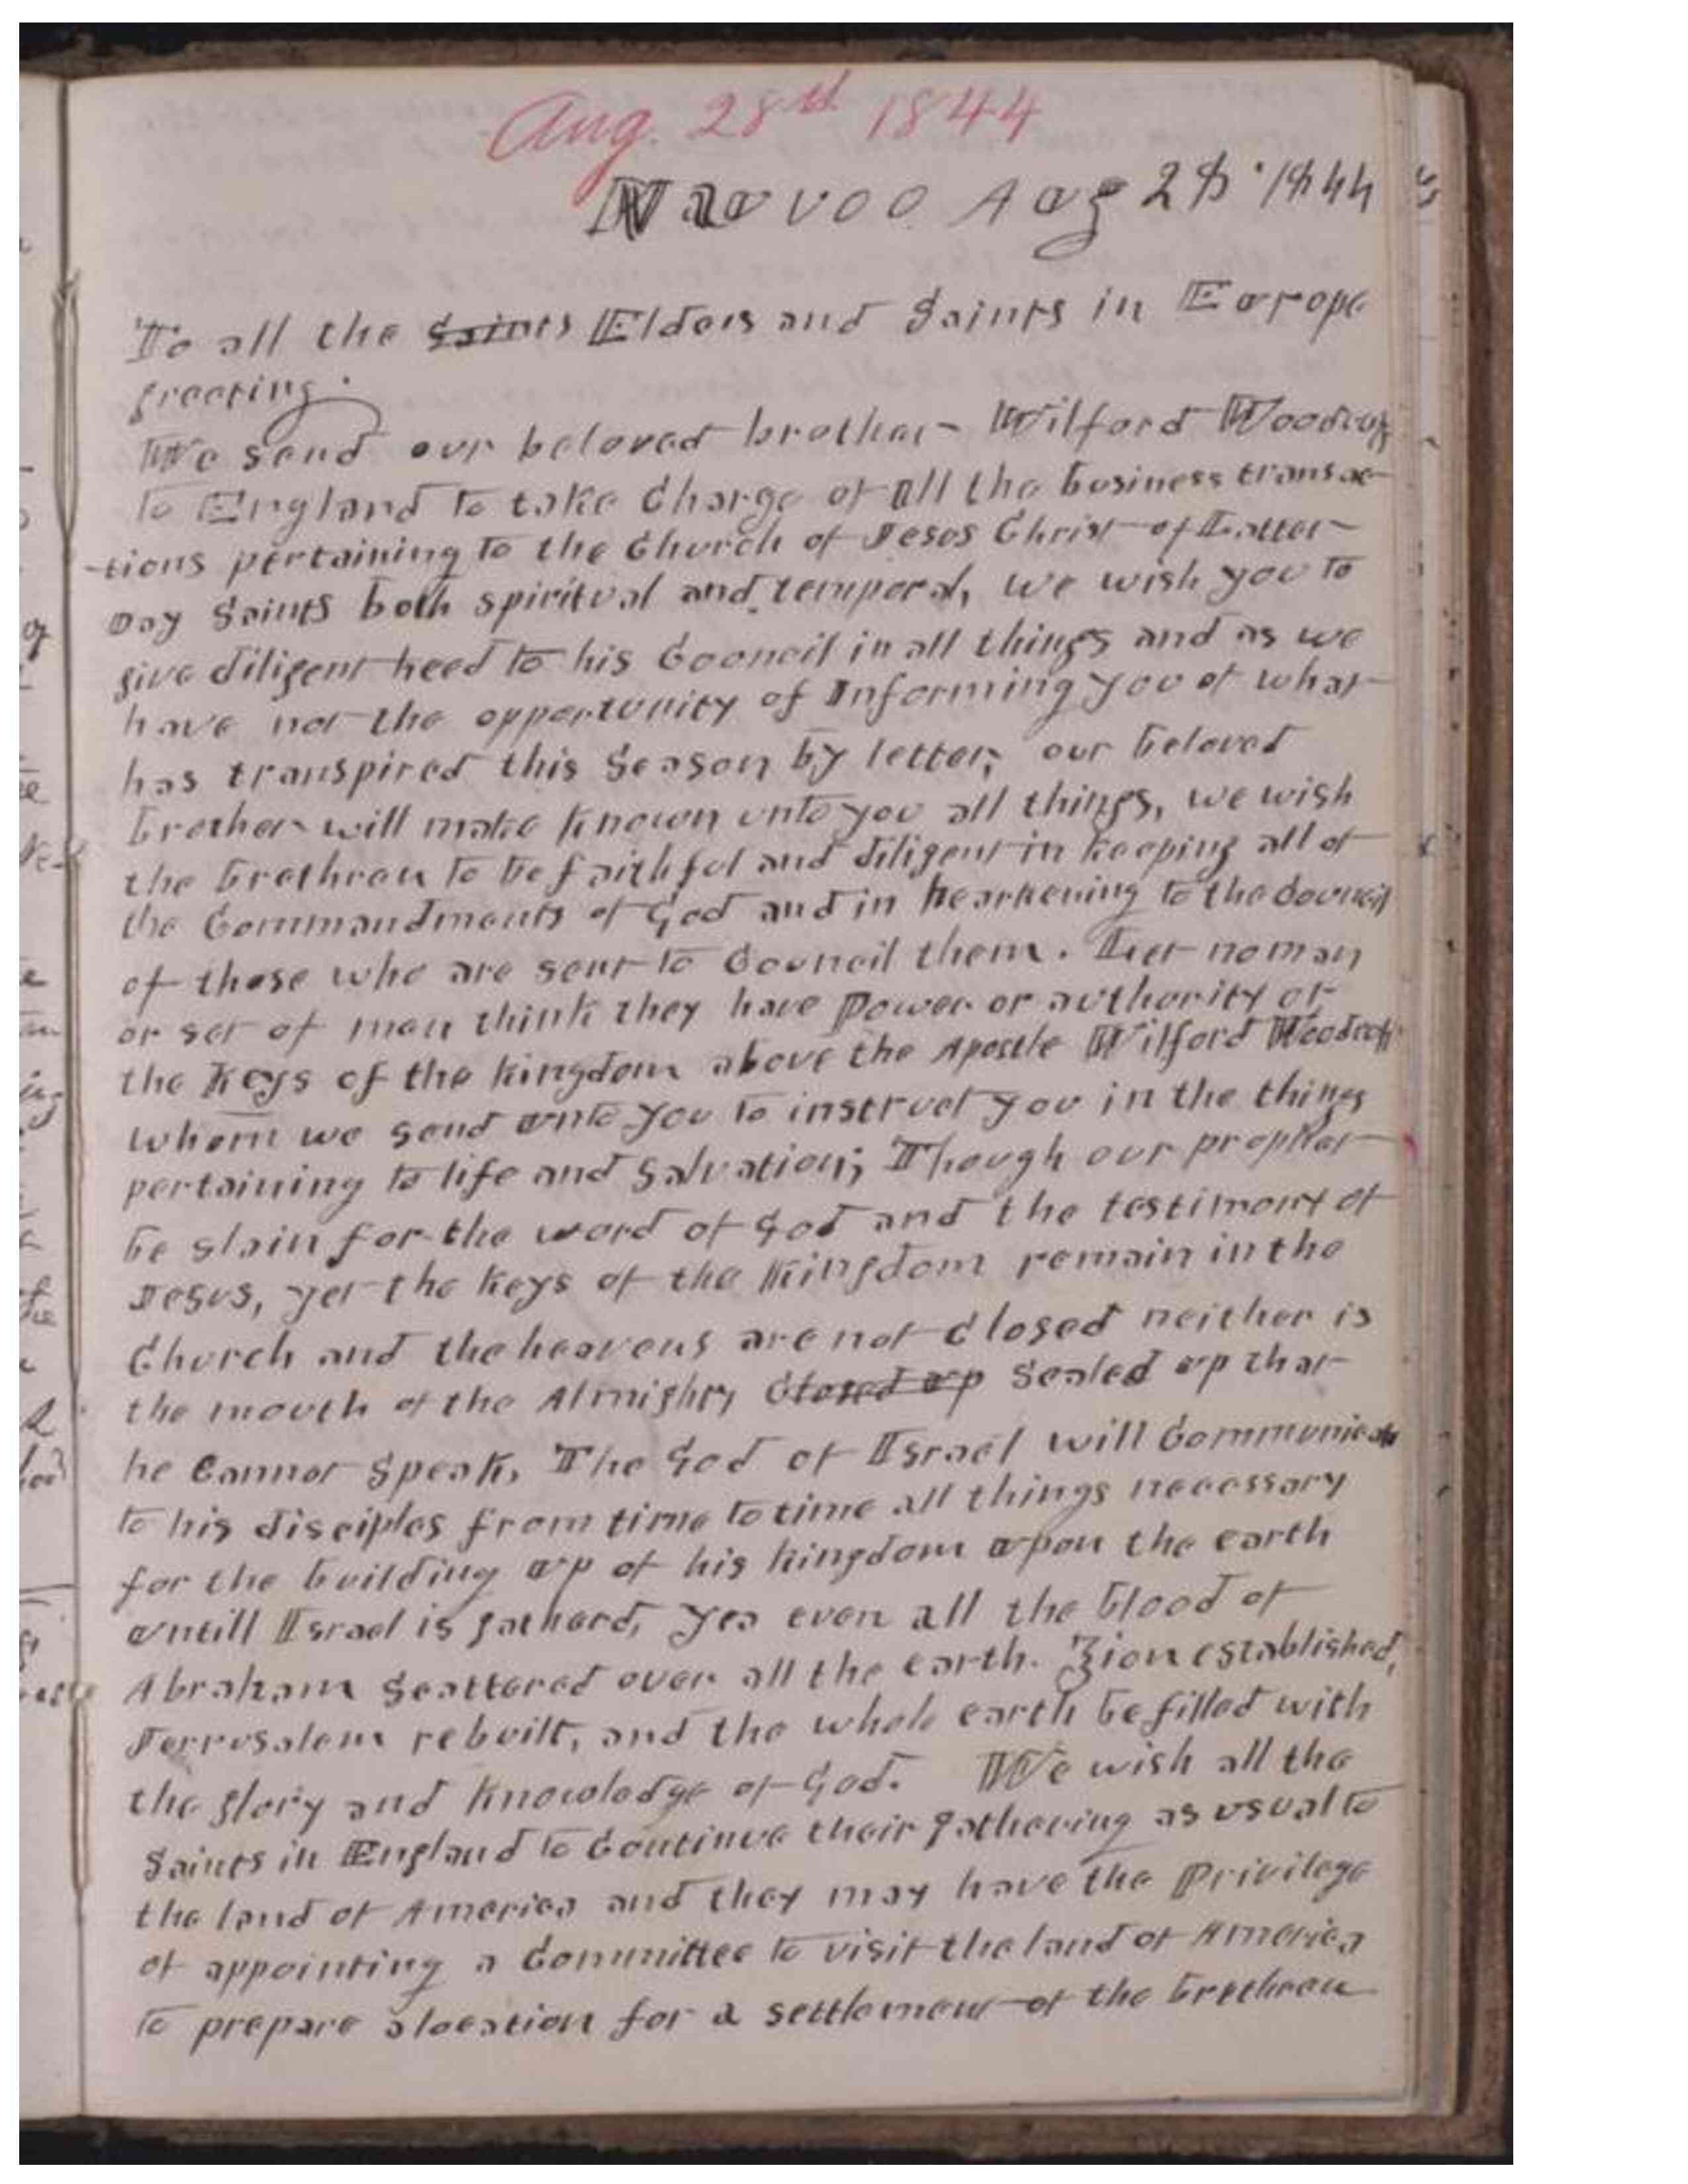 Aug. 28th 1844
Nauvoo Aug 28 · 1844
To all the Saints Elders and Saints in Europe
greeting.
We send our beloved brother Wilford Woodruff
to England to take Charge of all the business transac-
-tions pertaining to the Church of Jesus Christ of Latter-
Day Saints both spiritual and temporal, we wish you to
give diligent heed to his Council in all things and as we
have not the opportunity of Informing you of what
has transpired this Season by letter, our beloved
brother will make known unto you all things, we wish
the brethren to be faithful and diligent in keeping all of
the Commandments of God and in hearkening to the Council
of those who are sent to Council them. Let no man
or set of men think they have Power or authority or
the Keys of the kingdom above the Apostle Wilford Woodruff
whom we send unto you to instruct you in the things
pertaining to life and Salvation; Though our prophet
be slain for the word of God and the testimony of
Jesus, yet the keys of the Kingdom remain in the
Church and the heavens are not Closed neither is
the mouth of the Almighty Closed up Sealed up that
he Cannot Speak, The God of Israel will Communicate
to his disciples from time to time all things necessary
for the building up of his kingdom upon the earth
untill Israel is gatherd, yea even all the blood of
Abraham Scattered over all the earth. Zion established,
Jerrusalem rebuilt, and the whole earth be filled with
the glory and Knowledge of God. We wish all the
Saints in England to Continue their gathering as usual to
the land of America and they may have the Privilege
of appointing a Committee to visit the land of America
to prepare a location for a settlement of the brethren